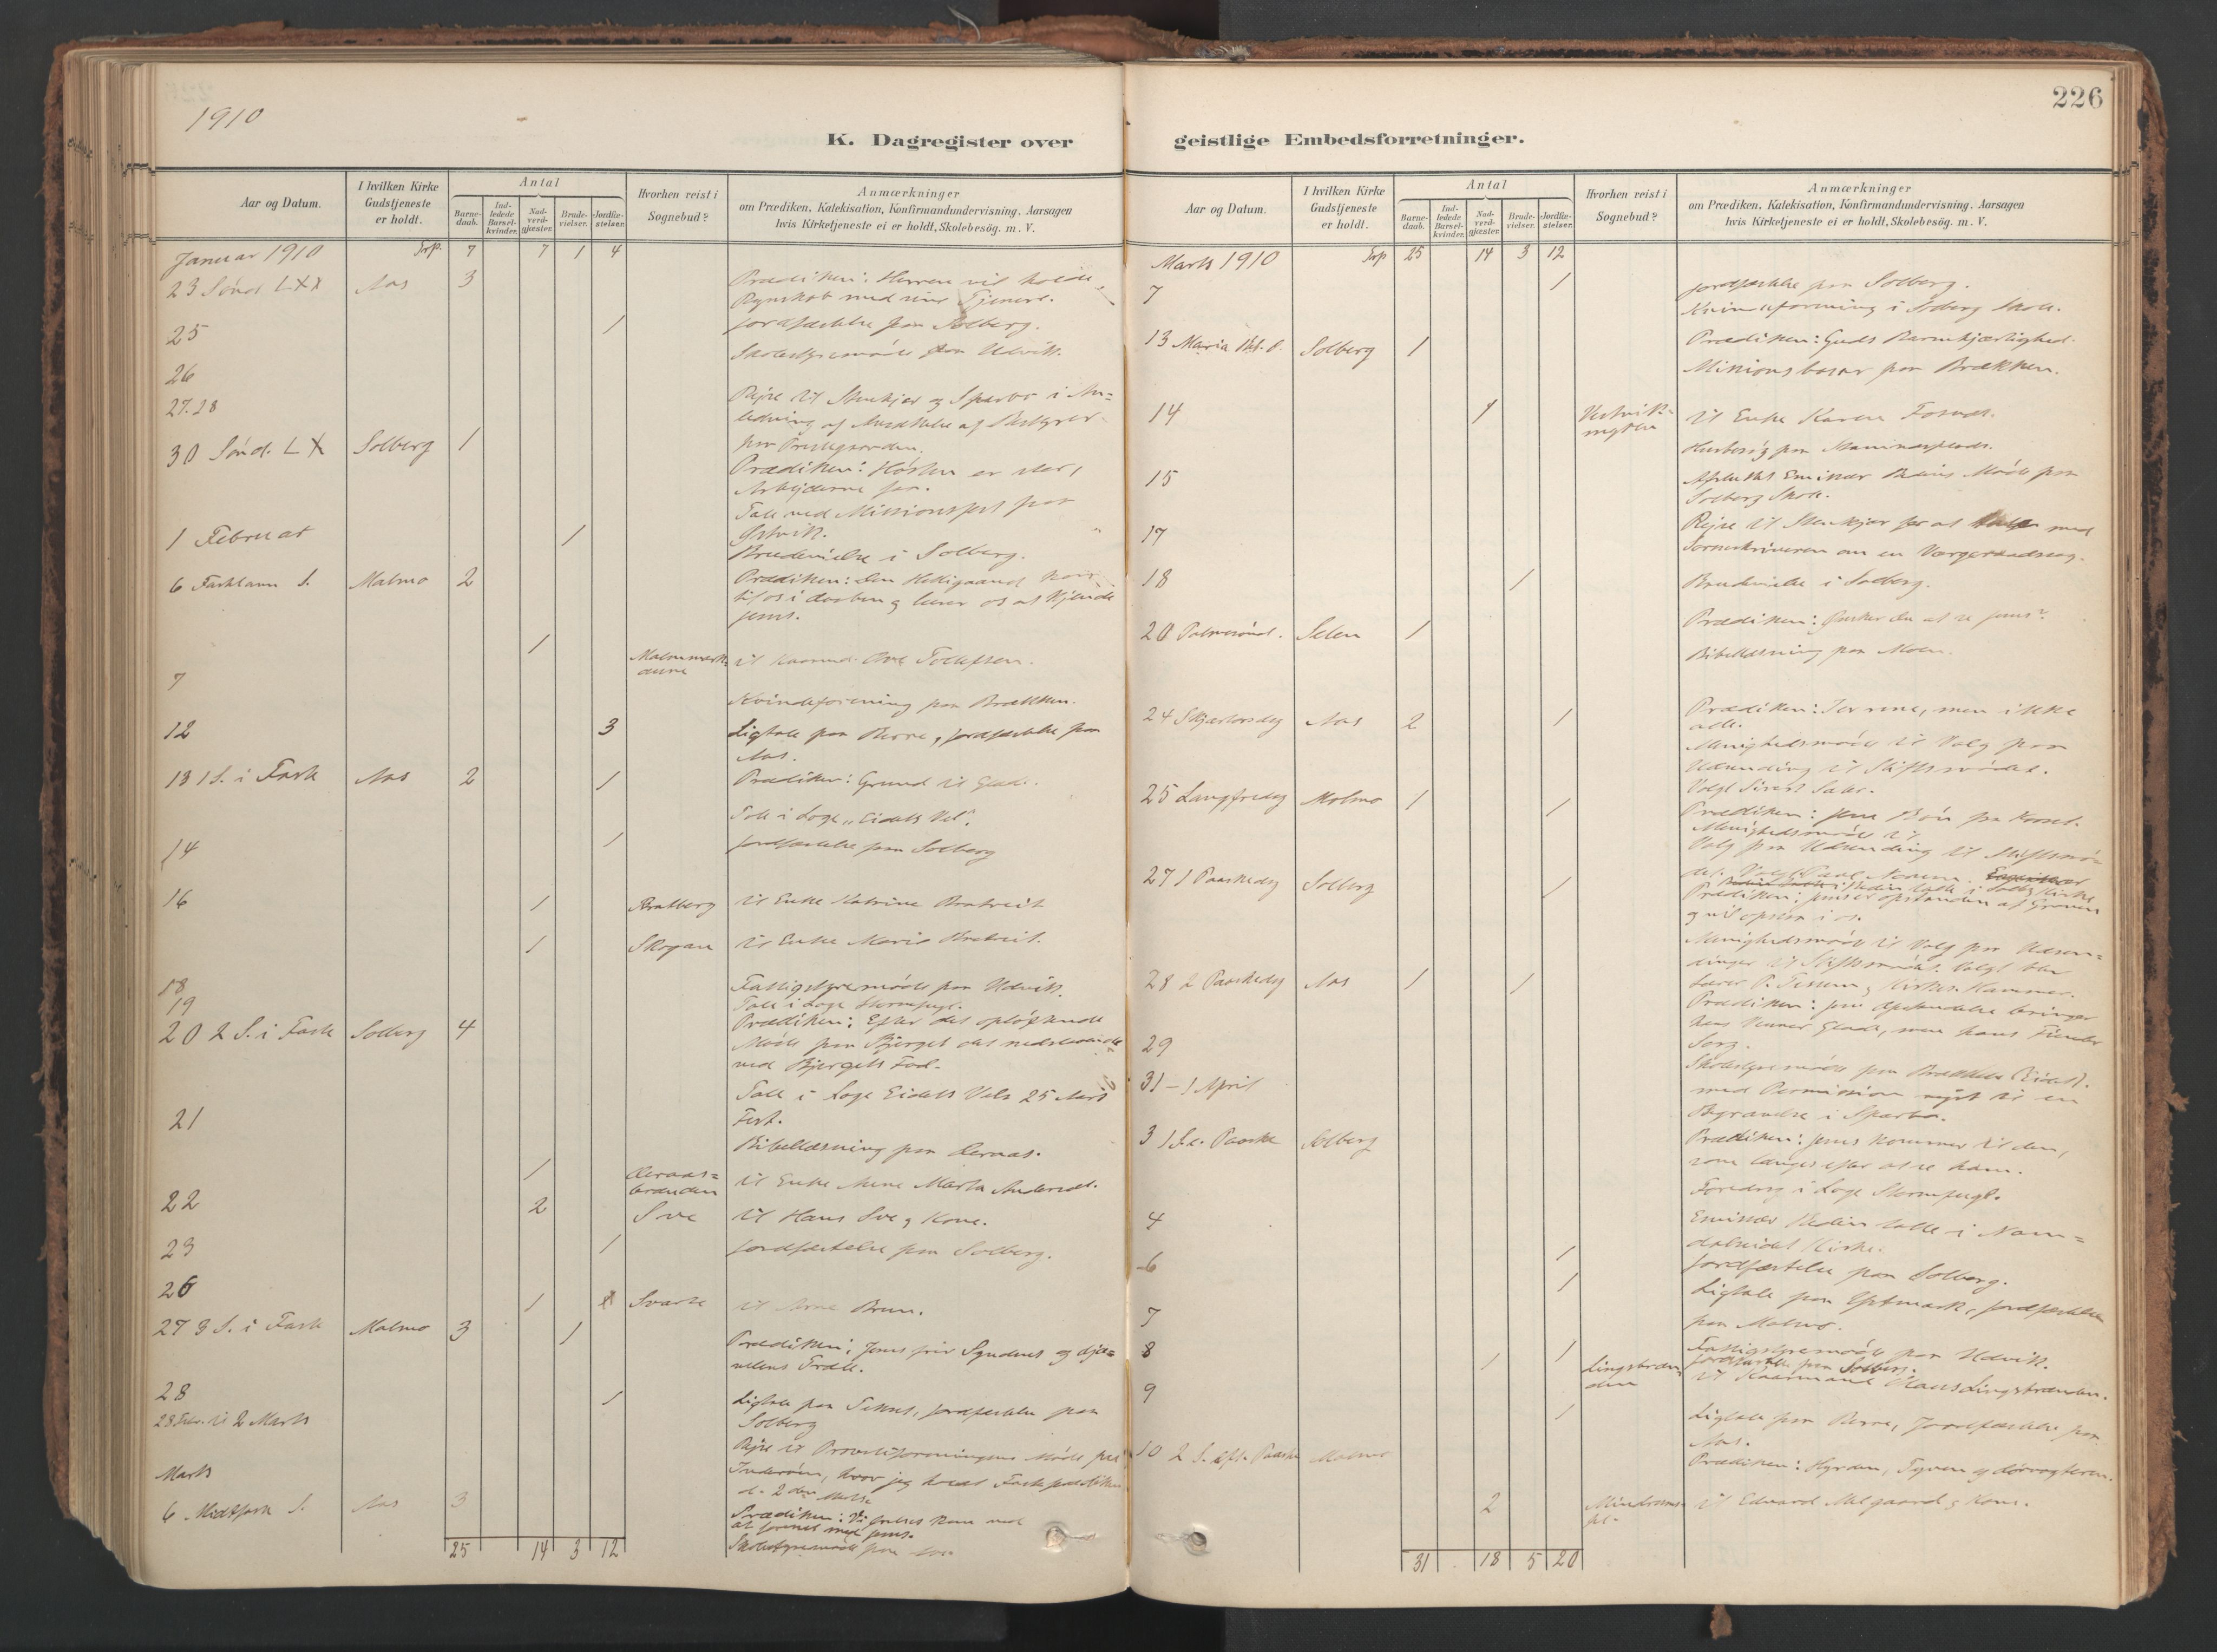 1910
K. Dagregister over
Aar og Datum.
I hvilken Kirke Gudstjeneste er holdt.
Antal
Barne-daab.
Ind-ledede Barsel-kvinder.
Nad-verd-gjæster.
Brude-vielser.
Jordfæ-stelser.
Hvorhen reist i Sognebud?
Anmærkninger
om Prædiken, Katekisation, Konfirmandundervisning. Aarsagen
hvis Kirketjeneste ei er holdt, Skolebesög. m. V.
Januar 1910 Trsp. 7 7 1 4
23 Sönd. LXX Aas 3 Prædiken: Herren vil holde
Regnskab med sine Tjenere.
25 1 Jordfæstelse paa Solberg.
Skolestyremöde paa Udvik.
26
27.28 Rejse til Stenkjær og Sparbo i An=
ledning af
paa Prestegaarden.
30 Sönd. LX Solberg 1 Prædiken: Hösten er stor,
Arbejderne faa.
Tale ved Missionsfest paa
Østvik.
1 Februar 1 Brudevielse i Solberg.
6 Fastelavn S. Malmo 2 Prædiken: Den Helligaand
til os i daaben og lærer os at kjende
Jesus.
1 til Kaarmd. Tollefsen.
7
Kvindeforening paa Brækken.
12 3 Ligtale paa Berre, jordfæstelse paa
Aas.
13 1 S. i Faste Aas 2 1 Prædiken: Grund til Glæde.
Tale i Loge "Eidets Vel".
14 1 Jordfæstelse paa Solberg
16 1 Bratberg til Enke Katrine Bratreit
1 Skogan til Enke Maria Bratreit.
18 Fattigstyremöde paa Udvik.
19 Tale i Loge Stormfugl.
20 2 S. i Faste Solberg 4 Prædiken: Efter det oplöftende
Möde paa Bjerget det nedslaaende
ved Bjergets Fod.
21 Tale i Loge Eidets Vels 25 Aars
Fest.
Bibellæsning paa Deraas.
1 Deraas= til Enke Anne Marta Andersd.
22 2 Sve til Hans Sve og Kone.
23 1 Jordfæstelse paa Solberg.
26 1 Svarte til Arne Brun.
27 3 S. i Faste Malmo 3 1 Prædiken: Jesus frir Syndens og djæ=
velens Træl.
28 1 Ligtale paa jordfæstelse paa
Solberg
28 Febr. til 2 Marts Rejse til Provstiforeningens Möde paa
Inderöen, hvor jeg holdt Fasteprædiken
d. 2 den Marts
Marts
6 Midtfaste S. Aas 3 Prædiken: Vi frelses kun ved
at forenes med Jesus.
Skolestyremöde paa
25 14 3 12
226
geistlige Embedsforretninger.
Aar og Datum.
I hvilken Kirke Gudstjeneste er holdt.
Antal
Barne-daab.
Ind-ledede Barsel-kvinder.
Nad-verd-gjæster.
Brude-vielser.
Jordfæ-stelser.
Hvorhen reist i Sognebud?
Anmærkninger
om Prædiken, Katekisation, Konfirmandundervisning. Aarsagen
hvis Kirketjeneste ei er holdt, Skolebesög. m. V.
Marts 1910 Trsp 25 14 3 12
7 1 Jordfæstelse paa Solberg.
Kvindeforening i Solberg Skole.
13 Maria Solberg 1 Prædiken: Guds Barmhjærtighed.
Missionsbasar paa Brækken.
14 1 til Enke Karen Fosnæs.
Husbesög paa
15 Emissær Möde paa
Solberg Skole.
17 Rejse til Stenkjær for at tale med
Sorenskriveren om en Værgeraadssag.
18 1 Brudevielse i Solberg.
20 Palmesönd. Selen 1 Prædiken: Önsker du at se Jesus?
Bibellæsning paa Moen.
24 Skjærtorsdag Aas 2 1 Prædiken: I er rene, men ikke
alle.
Menighedsmöde til Valg paa
Udsending til Stiftsmödet.
Valgt Sivert Saler.
25 Langfredag Malmo 1 1 Prædiken: Jesu Bön paa Korset.
Menighedsmöde til
Valg paa Udsending til Stiftsmö=
det.
27 1 Paaskedag Solberg 1 Prædiken: Jesus er opstanden af Graven
og vil opstaa i os.
Menighedsmöde til Valg paa Udsen=
dinger til Stiftsmödet. Valgt blev
Lærer P. Tessem og Kirkes. Hammer.
28 2 Paaskedag Aas 1 1 Prædiken: Jesu Opstandelse bringer
hans Venner Glæde, men hans Fiender
Sorg.
29 Skolestyremöde paa Brækken (Eidet).
31 - 1 April med Permission rejst til en
Begravelse i Sparbo.
3 1 S. e. Paaske Solberg Prædiken: Jesus kommer til dem,
som længes efter at se ham.
Foredrag i Loge Stormfugl.
4 Emissær Hedin talte i Nam=
dalseidet Kirke.
6 1 Jordfæstelse paa Solberg.
1 Ligtale paa jordfæstelse
paa Malmo.
7 Fattigstyremöde paa Udvik.
8 1 1 Jordfæstelse paa Solberg.
til Kaarmand Hans Lingstranden.
9 1 Ligtale paa Berre, Jordfæstelse paa
Aas.
10 2 S. eft. Paaske Malmo Prædiken: Hyrden, Tyven og dörvogteren.
2 til Edvard og Kone.
31 18 5 20